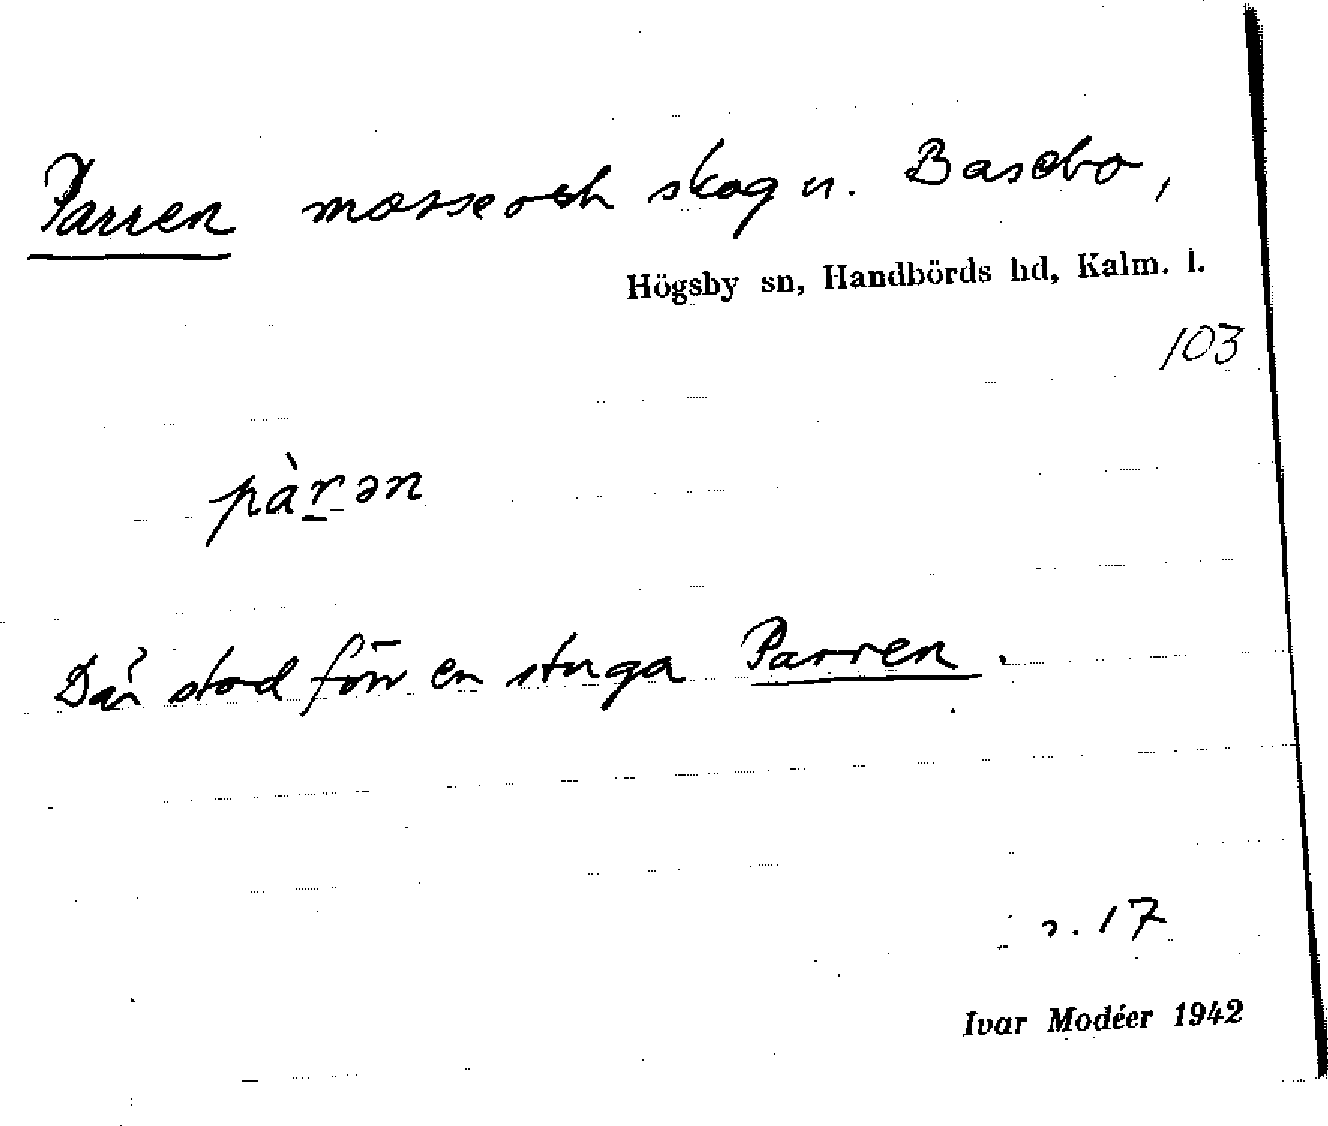 Parren mosse och skog n. Basebo,
Högsby sn, Handbörds hd, Kalm. l.
103
pàr̲ən
Där stod förr en stuga Parren.
s. 17
Ivar Modéer 1942